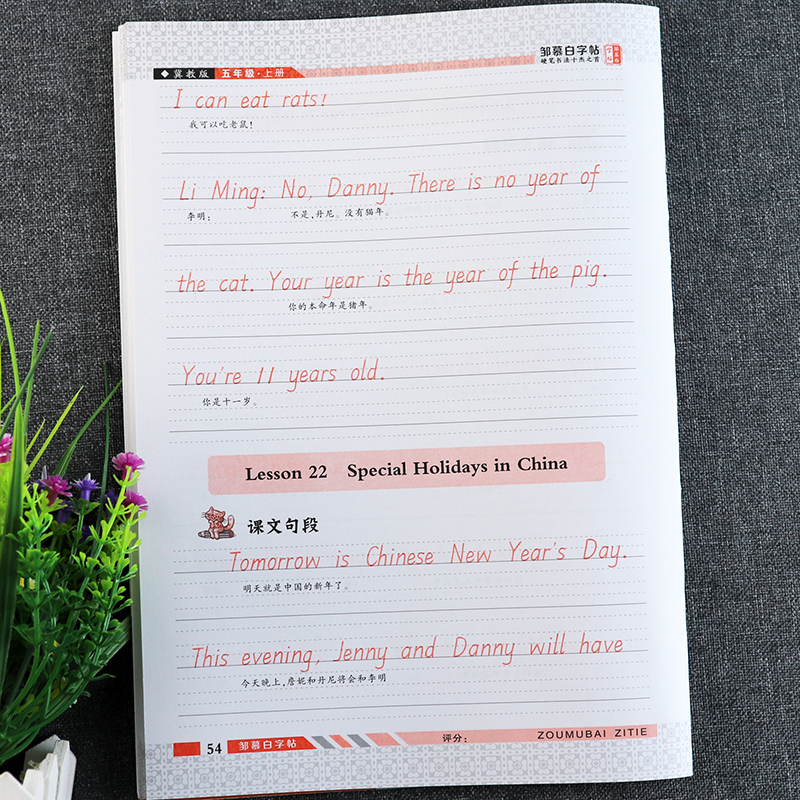 邹慕白字帖
硬笔书法十杰之首
◆冀教版 五年级·上册
I can eat rats!
我可以吃老鼠!
Li Ming: No, Danny. There is no year of
李明: 不是,丹尼。没有猫年。
the cat. Your year is the year of the pig.
你的本命年是猪年。
You're 11 years old.
你是十一岁。
Lesson 22 Special Holidays in China
课文句段
Tomorrow is Chinese New Year's Day.
明天就是中国的新年了。
This evening, Jenny and Danny will have
今天晚上,詹妮和丹尼将会和李明
54 邹慕白字帖 评分: ZOUMUBAI ZITIE